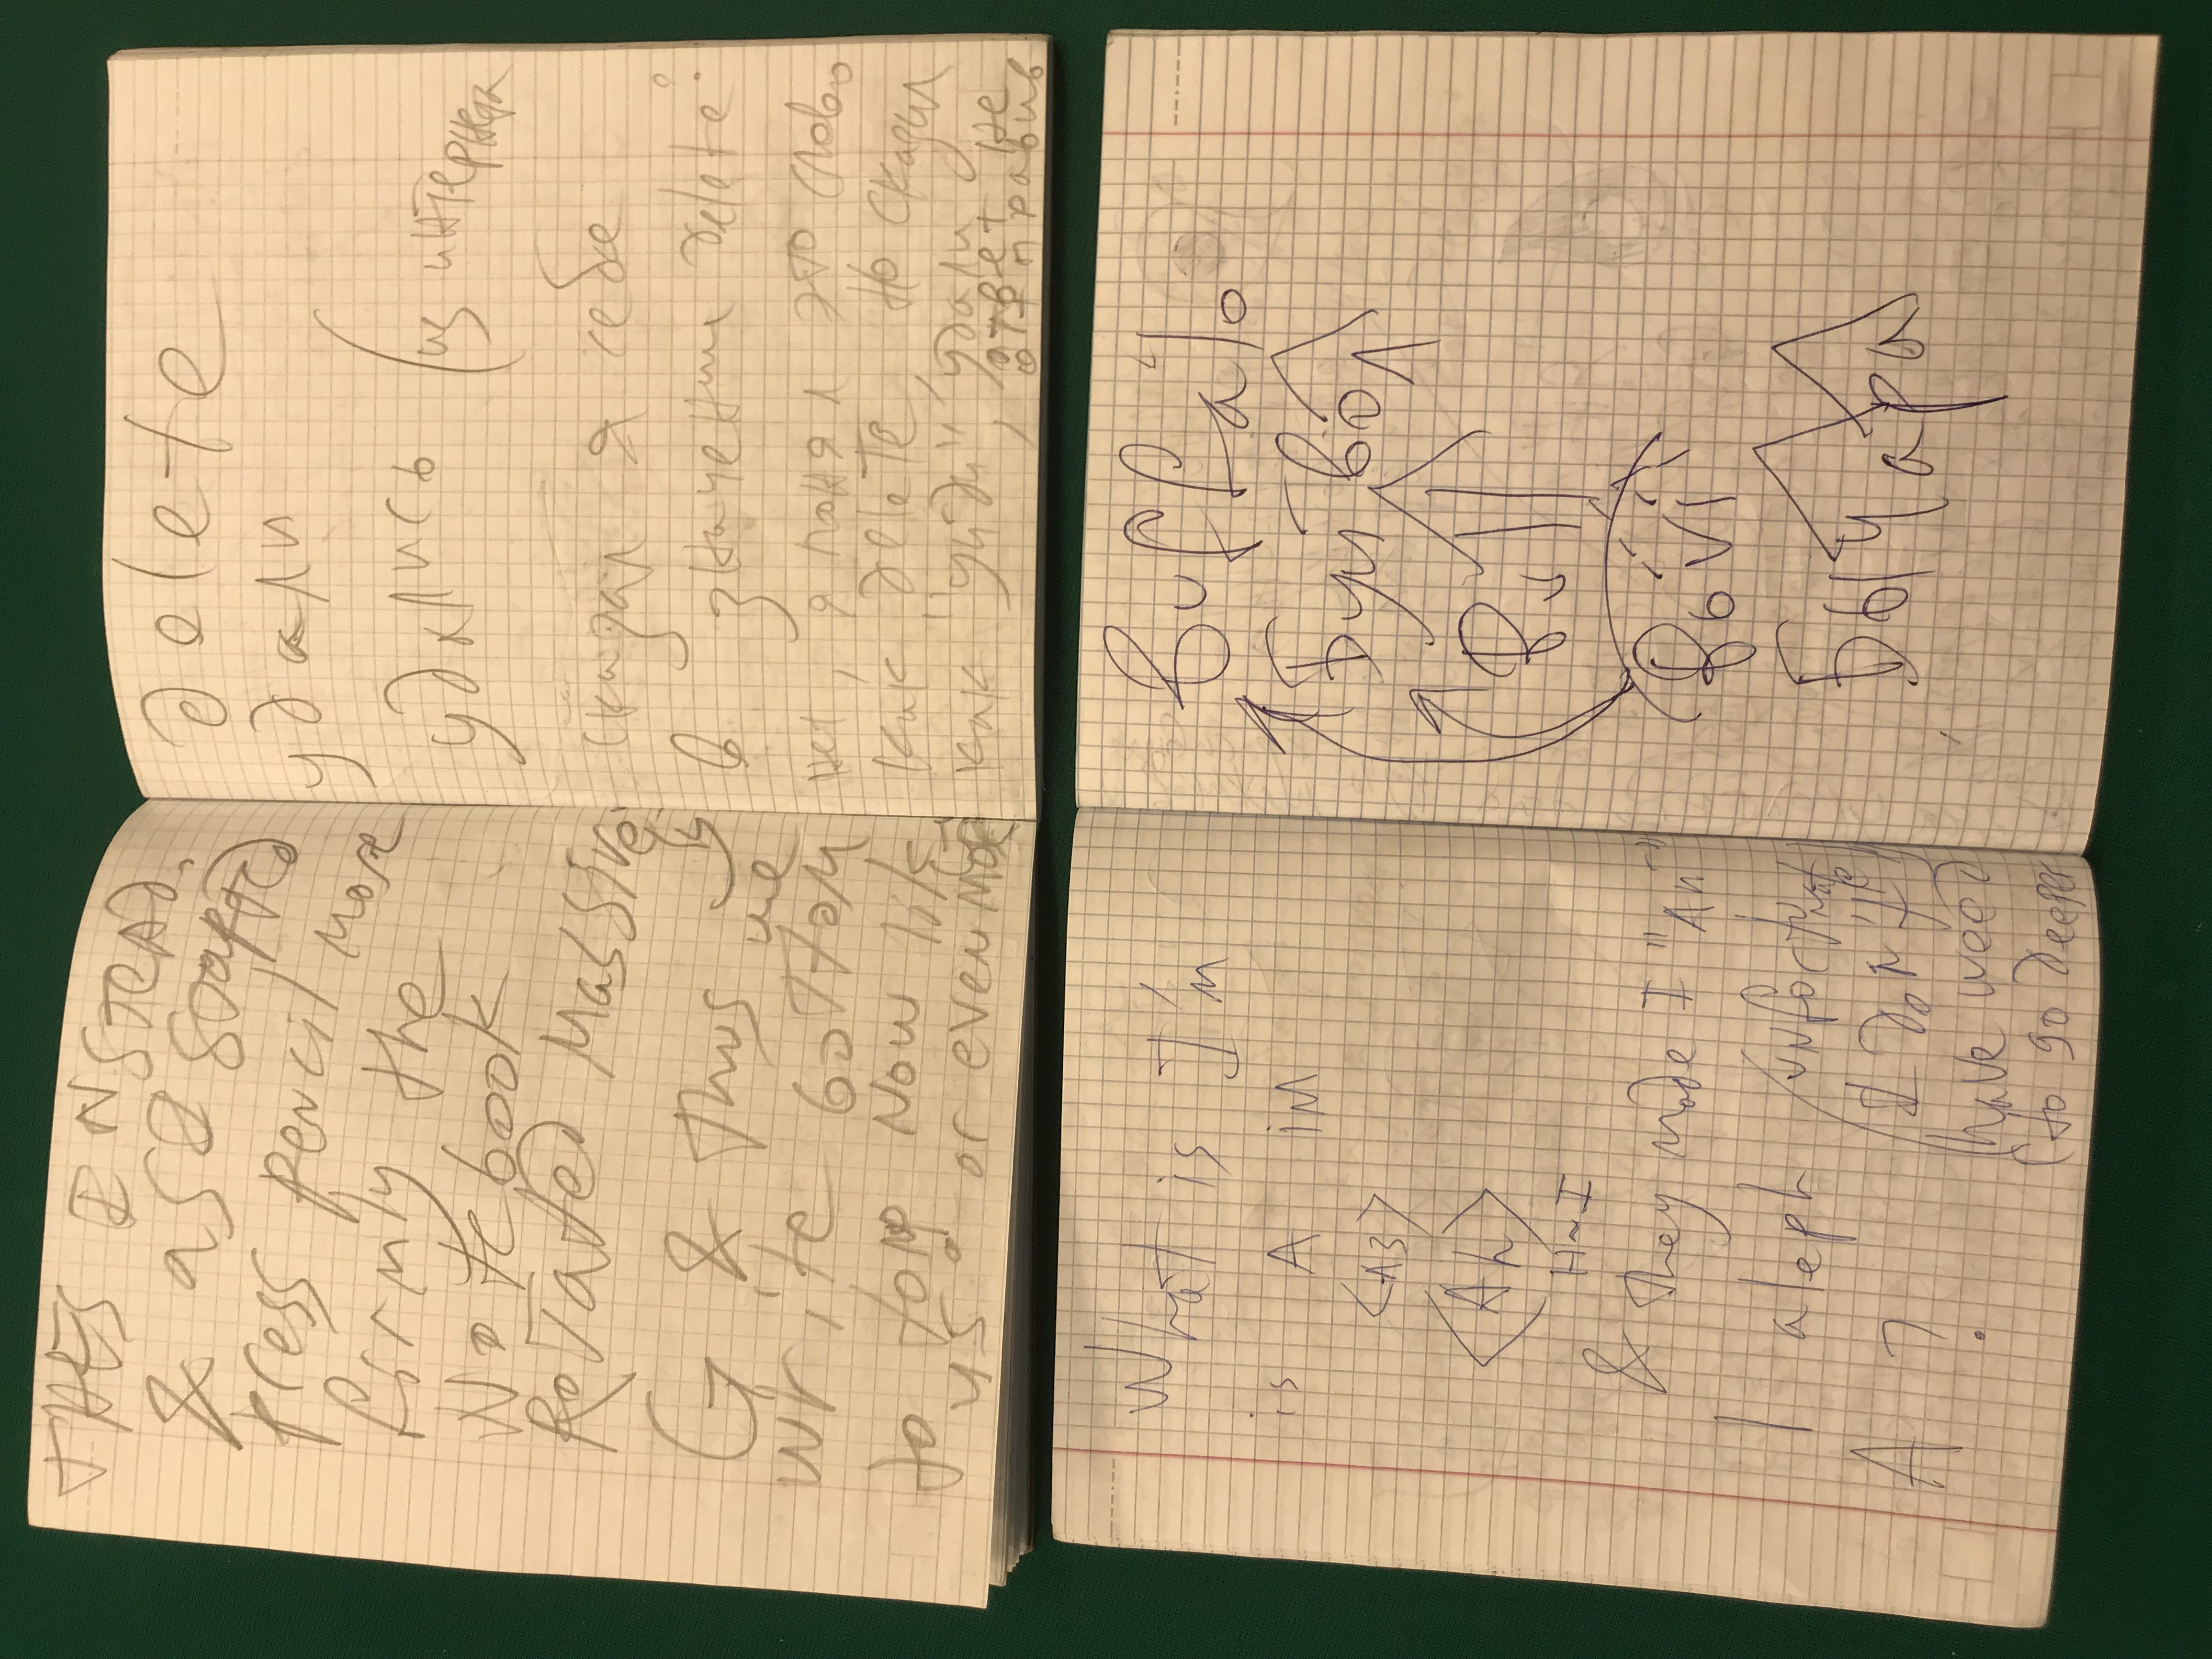 THIS INSTEAD.
& as I started
press pencil more
firmly the
Notebook
Rotated Massive-
ly
G & Thus we
write bottom
to top now like
45° or even more
delete
удали
удались (из интернета
сказал я себе
в значении delete:
нет, я понял это слово
как delete, но сказал
как "уйди", удали
ответ не
отправив
What is I'm
is A im
<A3>
<Ah>
H~I
& They made I "An"
I aleph (unfortunate
A ? I don't
have weed
(to go deeper
Buffalo
Буйвол
Bull
Бычара